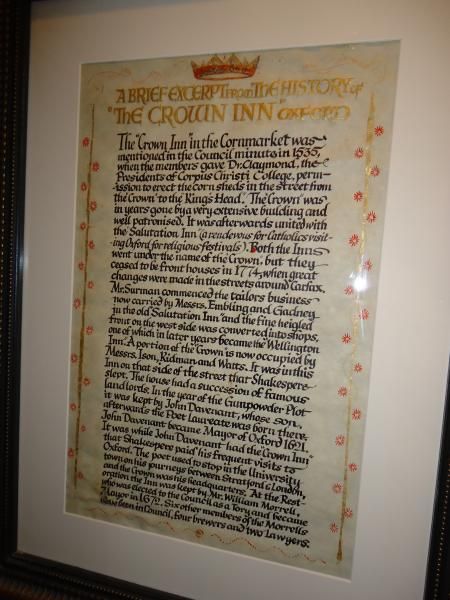 A BRIEF EXCERPT FROM THE HISTORY of
"THE CROWN INN" OXFORD
The "Crown Inn" in the Cornmarket was
mentioned in the Council minute in 1535,
when the members gave Dr. Claymond, the
Presidents of Corpus Christi College, perm-
ission to erect the corn sheds in the street from
the 'Crown' to the King's Head. The 'Crown' was
in years gone by a very extensive building and
well patronised. It was afterwards united with
the Salutation Inn (a rendevous for Catholics visit-
ing Oxford for religious festivals). Both the Inns
went under the name of the 'Crown', but they
ceased to be front houses in 1774, when great
changes were made in the streets around Carfax.
Mr. Surman commenced the tailors business
now carried by Messrs. Embling and Gadney
in the old Salutation Inn" and the fine heigled
front on the west side was converted into shops,
one of which in later years became the "Wellington
Inn". A portion of the "Crown" is now occupied by
Messrs. Ison, Kidman and Watts. It was in this
Inn on that side of the street that Shakespere
slept. The house had a succession of famous
landlords. In the year of the Gunpowder Plot
it was kept by John Davenant, whose son,
afterwards the Poet Laureate was born there.
John Davenant became Mayor of Oxford 1621.
It was while John Davenant had the "Crown Inn"
that Shakespere paid his frequent visits to
Oxford. The poet used to stop in the University
town on his journeys between Stratford & London,
and the Crown was his headquarters. At the Rest-
oration the Inn was kept by Mr. William Morrell,
who was elected to the Council as a Tory and became
Mayor in 1672. Six other members of the Morrells
have been in Council, four brewers and two Lawyers.